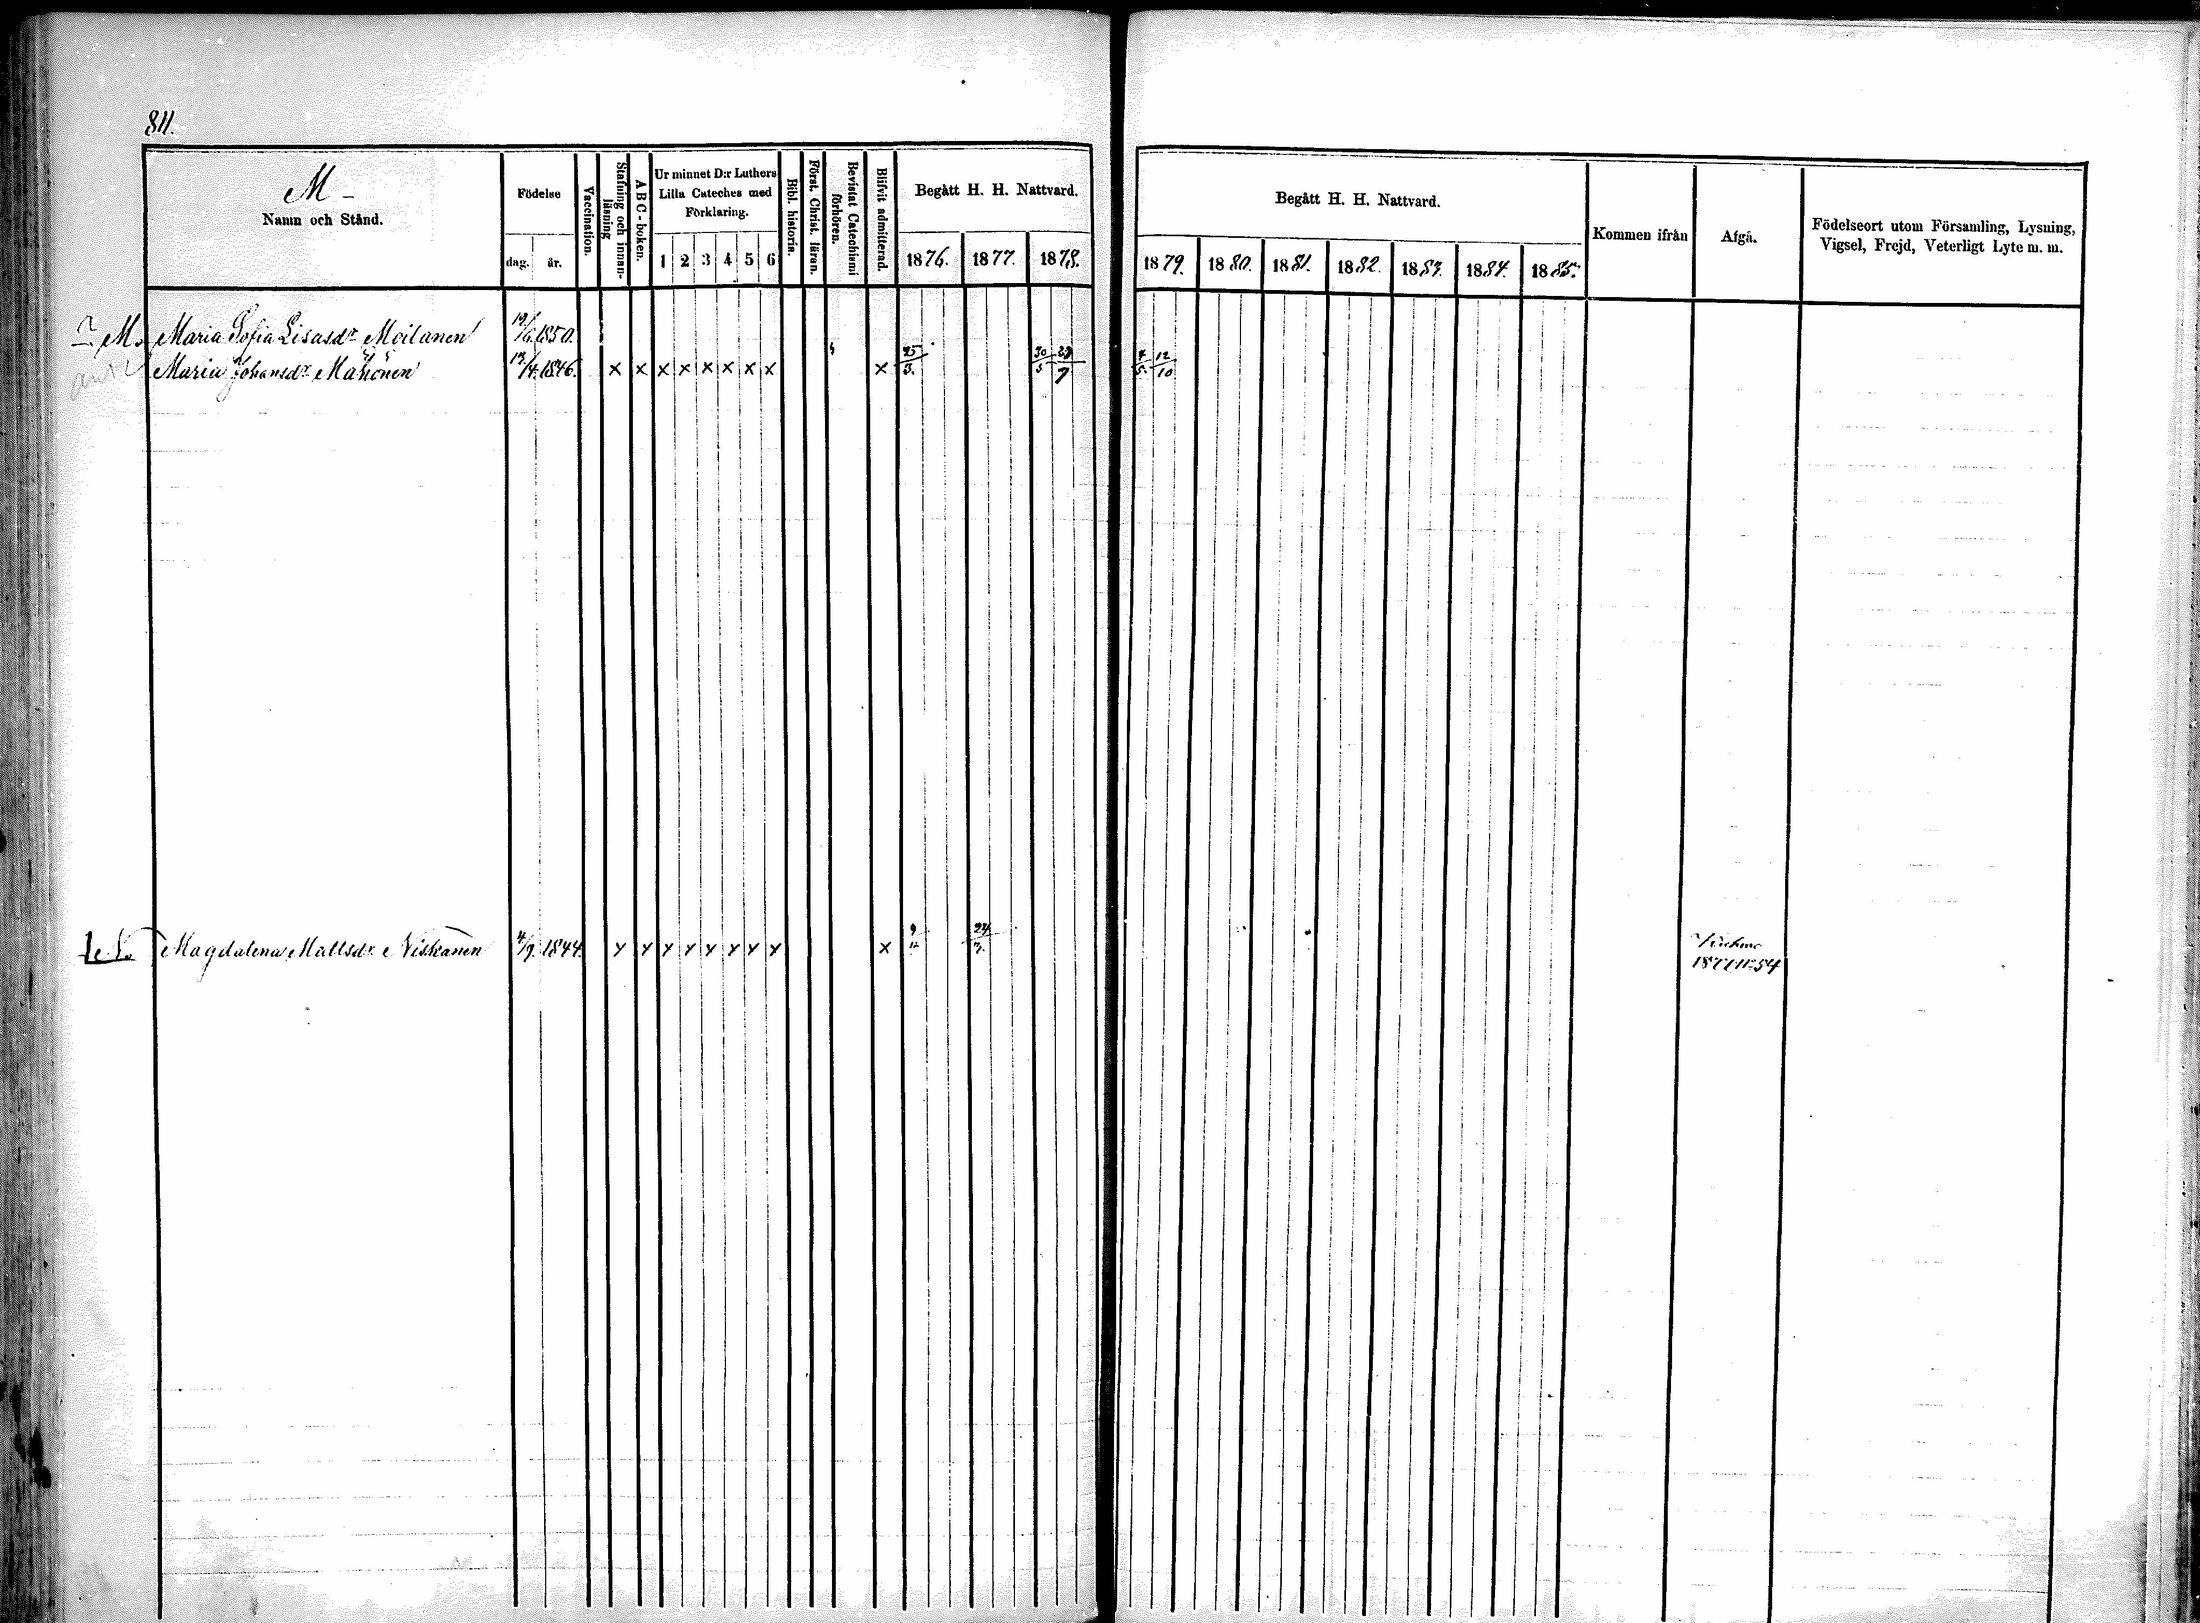 811.
M -
Namn och Stånd.
Födelse
dag. år.
Vaccination.
Stafning och innanläsning
ABC-boken.
Ur minnet D:r Luthers
Lilla Cateches med
Förklaring.
1 2 3 4 5 6
Bibl. historia.
Först. Christ. läran.
Bevistat Catechismi förhören.
Blifvit admitterad.
Begått H. H. Nattvard.
1876. 1877. 1878.
Begått H. H. Nattvard.
1879. 1880. 1881. 1882. 1883. 1884. 1885.
Kommen ifrån
Afgå.
Födelseort utom Församling, Lysning,
Vigsel, Frejd, Veterligt Lyte m. m.
M. Maria Sofia Lisasdr Moilanen 19/6 1850.
Maria Johansdr Mähönen 13/4 1846. × × × × × × × × × 25/3. 30/5 29/7 4/5 12/10
Magdalena Mattsdr Niskanen 4/9. 1844. × × × × × × × × × 9/12 24/3.
54